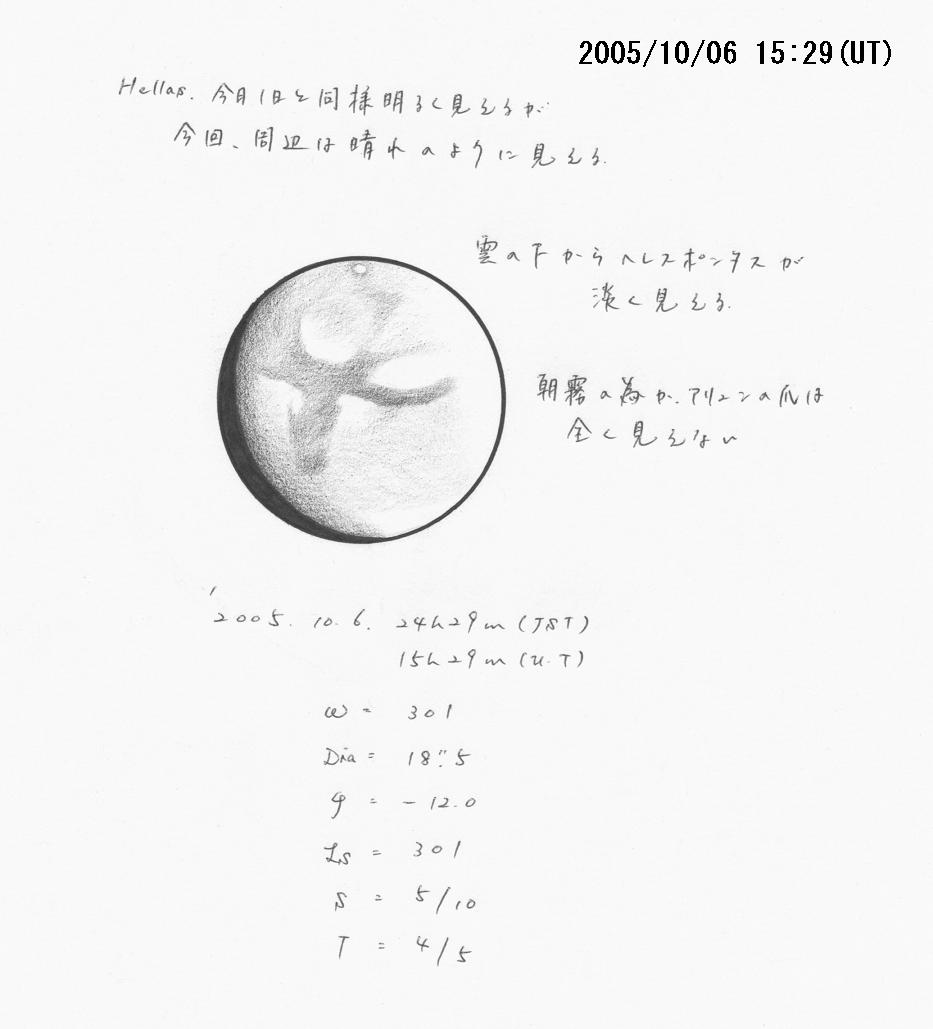 2005/10/06 15:29(UT)
Hellas. 今月1日と同様明るく見えるが
今回、周辺は晴れのように見える.
雲の下からヘレスポンタスが
淡く見える.
朝霧の為か、アリュンの爪は
全く見えない
'2005. 10. 6. 24h29m (JST)
15h29m (U.T)
ω = 301
Dia = 18".5
φ = -12.0
Ls = 301
S = 5/10
T = 4/5